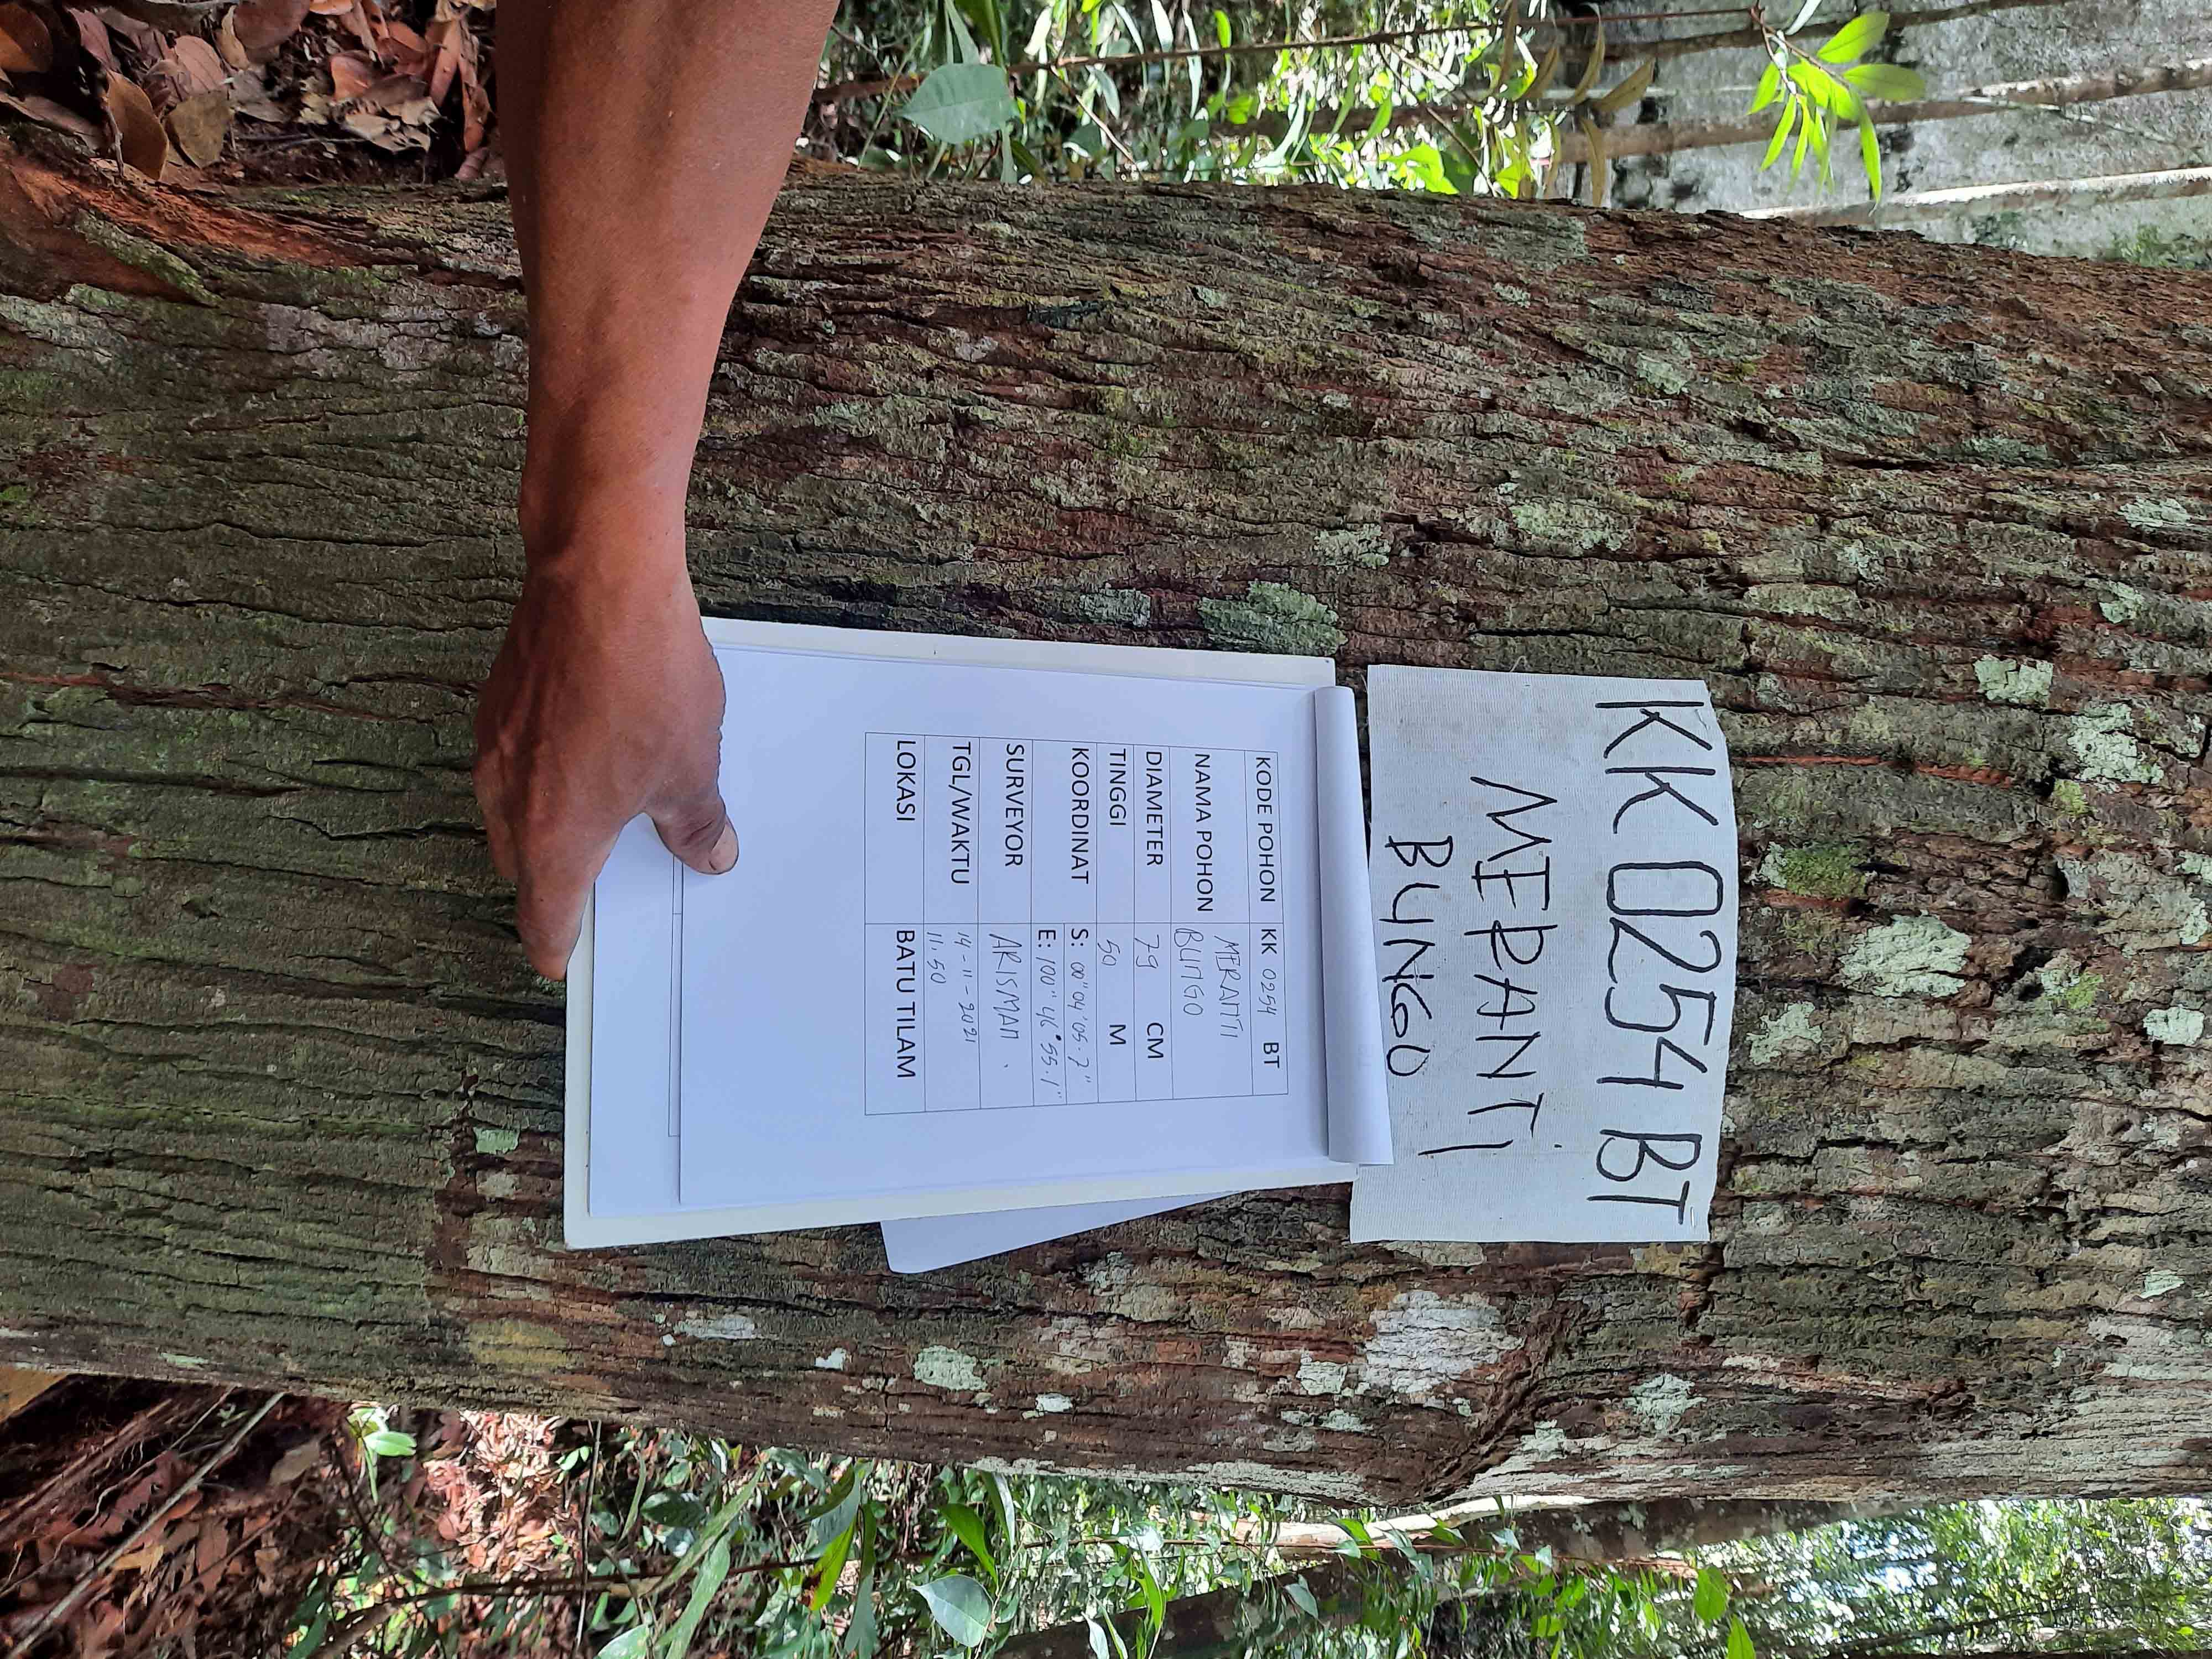 KK 0254 BT
MERANTi
BUNGO
KODE POHON KK 0254 BT
NAMA POHON MERANTI
BUNGO
DIAMETER 79 CM
TINGGI 50 M
KOORDINAT S: 00"04'05.7"
E: 100"46°55.1"
SURVEYOR ARISMAN
TGL/WAKTU 14-11-2021
11.50
LOKASI BATU TILAM